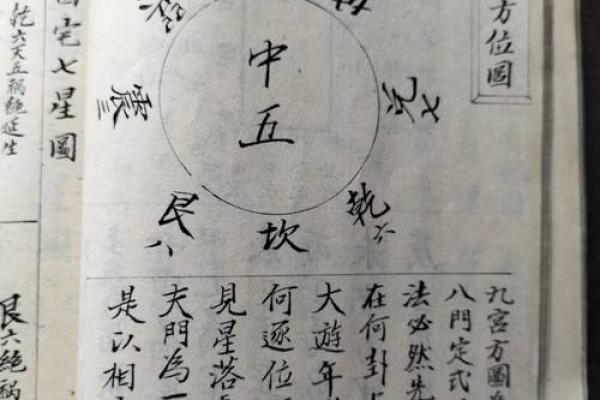 方位圖
中五
七兌
震三
乾六
艮八
坎
九宮方圖
八門定式
法必然先
在何卦
大遊年
何逐位
見星落
天門為一
是以相
宅七星圖
乾六天五禍絕延生
艮六絕禍